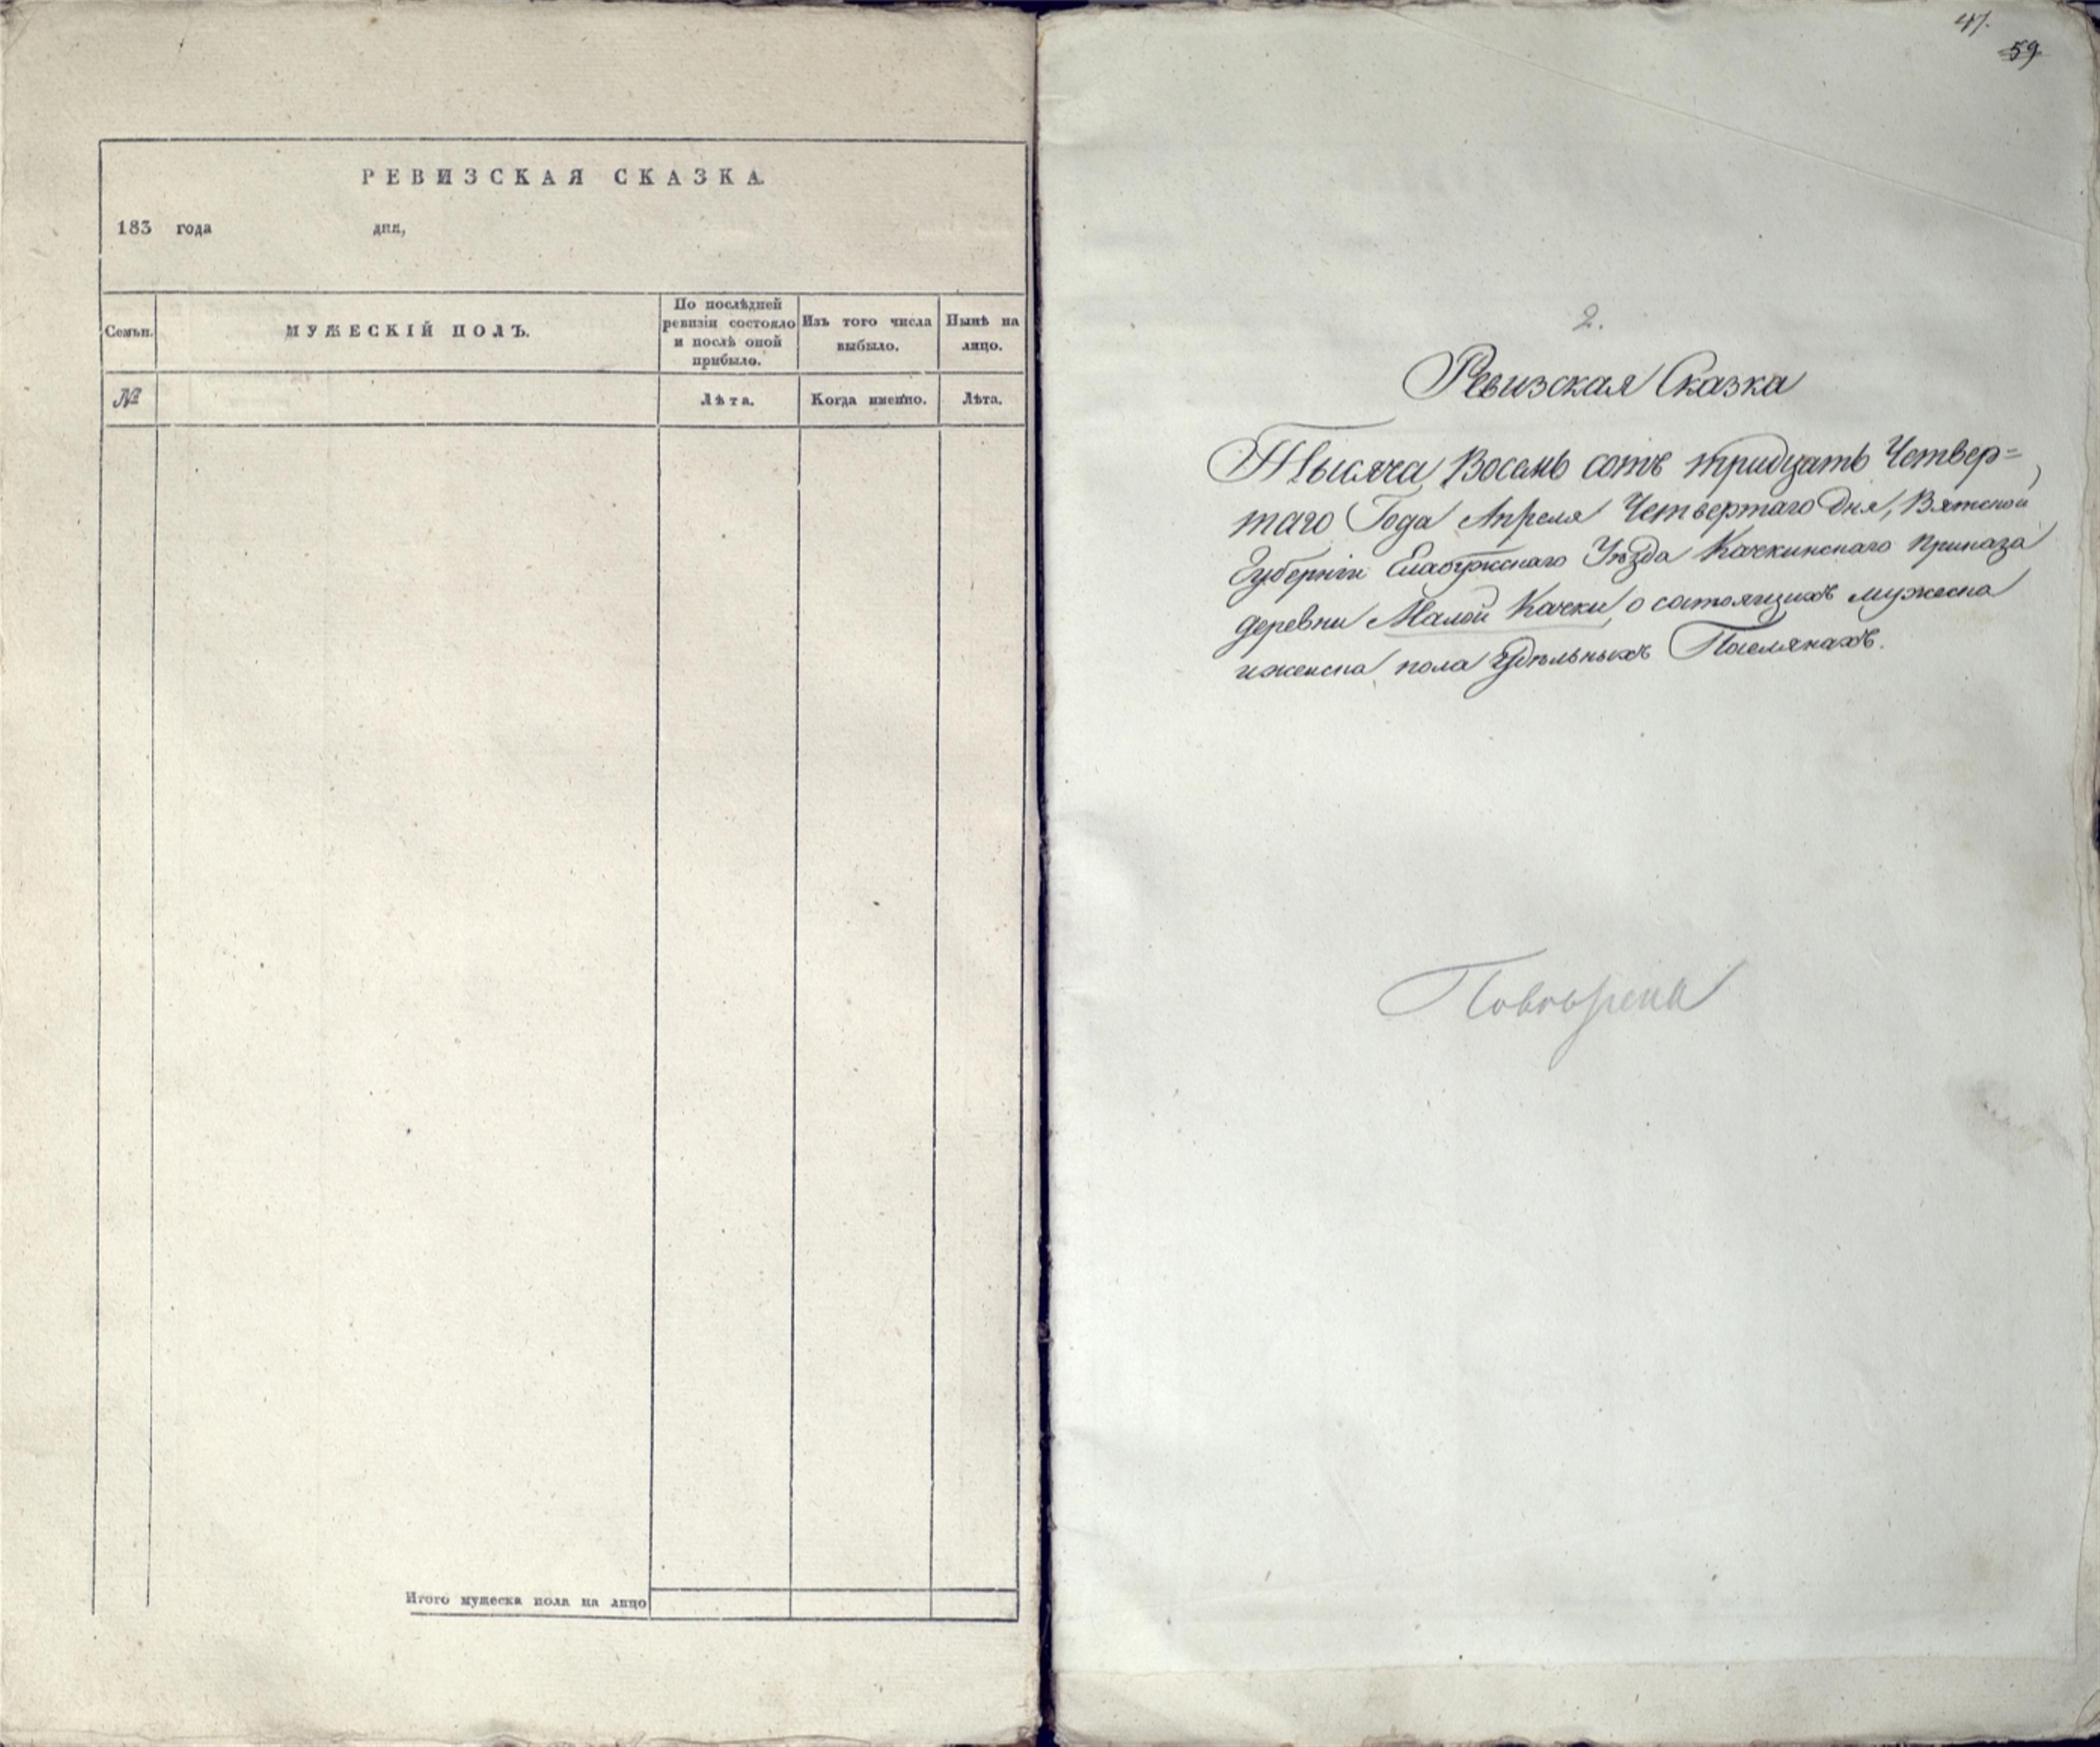 РЕВИЗСКАЯ СКАЗКА.
183 года дня,
Семьи.
МУЖЕСКІЙ ПОЛЪ.
По послѣдней
ревизіи состояло
и послѣ оной
прибыло.
Изъ того числа
выбыло.
Нынѣ на
лицо.
№
Лѣта.
Когда именно.
Лѣта.
Итого мужеска пола на лицо
47.
59
2.
Ревизская Сказка
Тысяча Восемь сотъ тридцать Четвер=
таго Года Апреля Четвертаго Дня, Вятской
Губерніи Елабужскаго Уѣзда Качкинскаго Приказа
деревни Малой Качки, о состоящихъ мужеска
и женска пола Удѣльныхъ Поселянахъ.